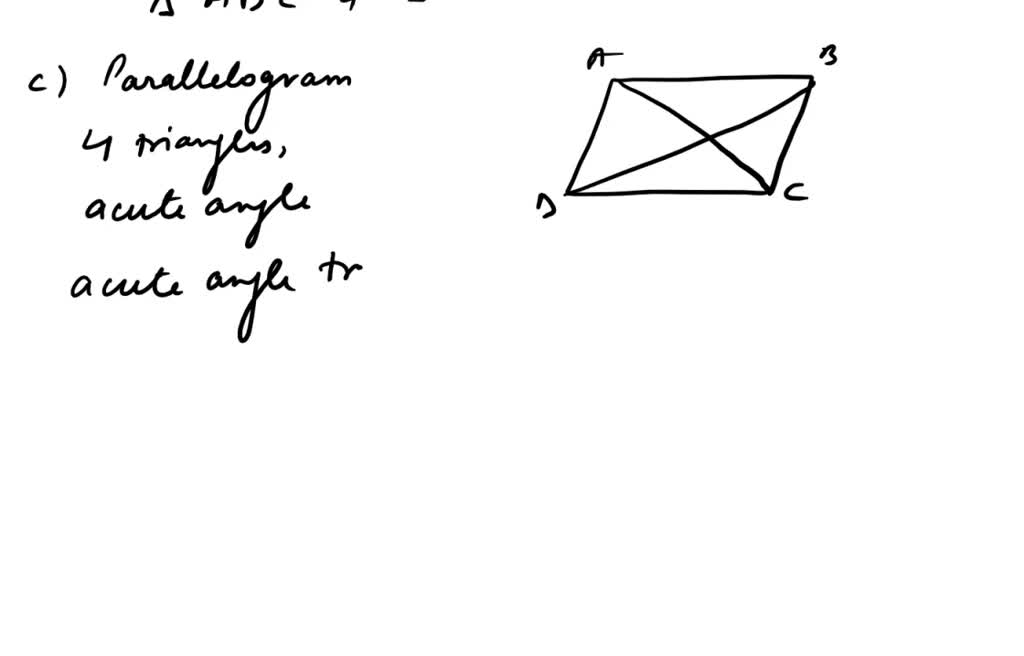 Δ ABC
c) Parallelogram
4 triangles,
acute angle
acute angle tr
A B
D C